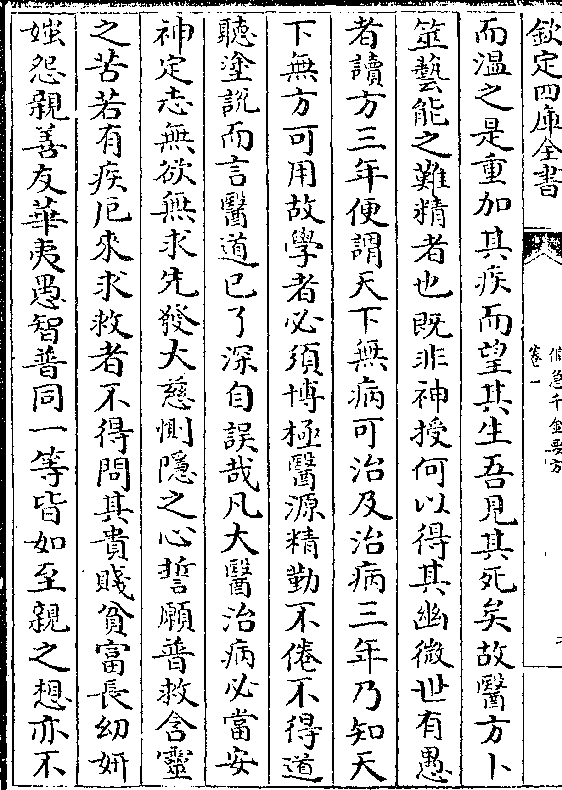 欽定四庫全書
備急千金要方
卷一
而温之是重加其疾而望其生吾見其死矣故醫方卜
筮藝能之難精者也既非神授何以得其幽微世有愚
者讀方三年便謂天下無病可治及治病三年乃知天
下無方可用故學者必須博極醫源精勤不倦不得道
聽塗説而言醫道已了深自誤哉凡大醫治病必當安
神定志無欲無求先發大慈惻隱之心誓願普救含靈
之苦若有疾厄來求救者不得問其貴賤貧富長幼妍
媸怨親善友華夷愚智普同一等皆如至親之想亦不